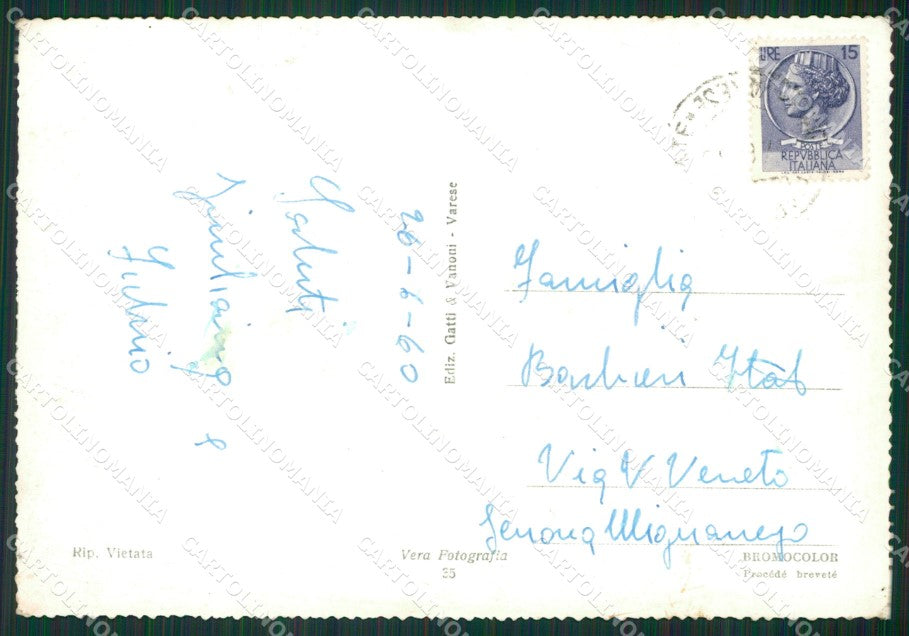 LIRE 15
POSTE
REPVBBLICA
ITALIANA
20-6-60
Saluti
Fulvio
Ediz. Gatti & Vanoni - Varese
Famiglia
Barbieri
Via V Veneto
Genova Mignanego
Rip. Vietata
Vera Fotografia
35
BROMOCOLOR
Procédé breveté
CARTOLINOMANIA